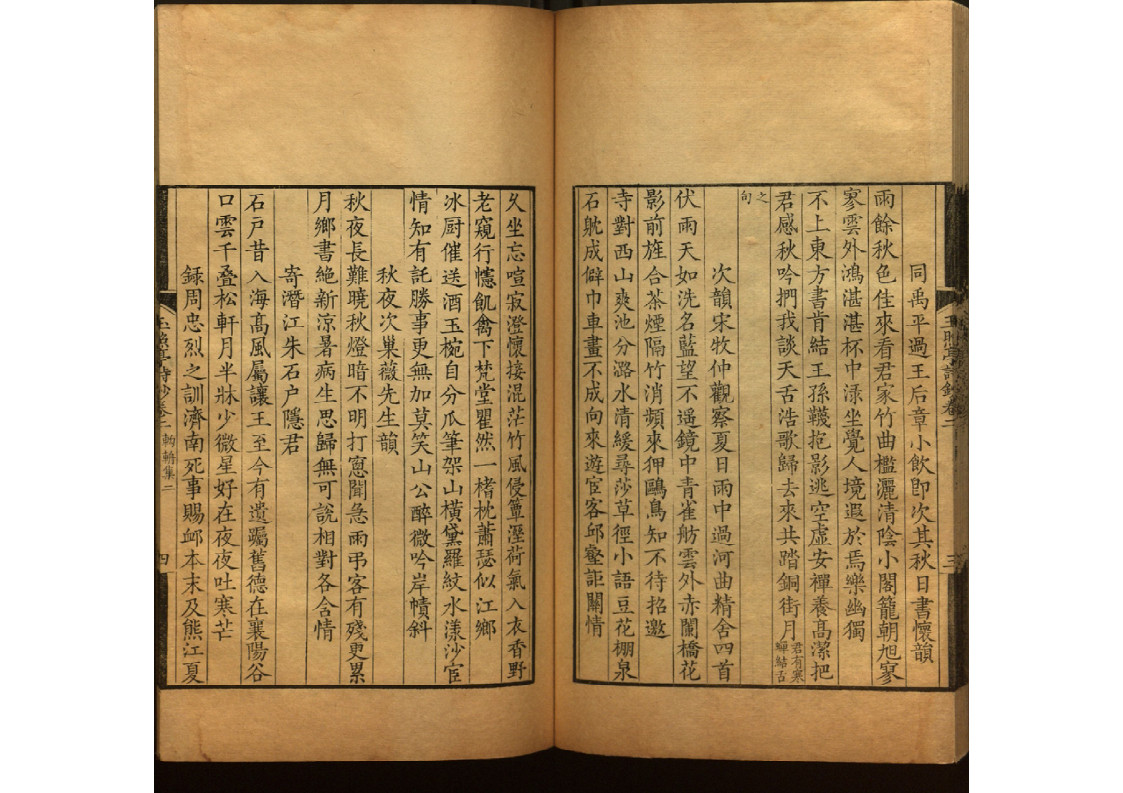 同禹平過王后章小飲即次其秋日書懷韻
雨餘秋色佳來看君家竹曲檻灑清陰小閣籠朝旭寥
寥雲外鴻湛湛杯中淥坐覺人境遐於焉樂幽獨
不上東方書肯結王孫韈抱影逃空虛安禪養高潔把
君感秋吟捫我談天舌浩歌歸去來共踏銅街月君有寒蟬結舌
之句
次韻宋牧仲觀察夏日雨中過河曲精舍四首
伏雨天如洗名藍望不遥鏡中青雀舫雲外赤闌橋花
影前旌合茶煙隔竹消頻來狎鷗鳥知不待招邀
寺對西山爽池分潞水清緩尋莎草徑小語豆花棚泉
石躭成僻巾車畫不成向來遊宦客邱壑詎關情
乆坐忘喧寂澄懷接混茫竹風侵簟溼荷氣入衣香野
老窺行幰飢禽下梵堂翟然一楮枕蕭瑟似江鄉
冰厨催送酒玉椀自分瓜筆架山橫黛羅紋水漾沙宦
情知有託勝事更無加莫笑山公醉微吟岸幘斜
秋夜次巢薇先生韻
秋夜長難曉秋燈暗不明打窻聞急雨弔客有殘更累
月鄉書絶新涼暑病生思歸無可說相對各含情
寄潛江朱石戸隱君
石戸昔入海高風屬讓王至今有遺躅舊德在襄陽谷
口雲千叠松軒月半牀少微星好在夜夜吐寒芒
錄周忠烈之訓濟南死事賜䘏本末及熊江夏
玉照亭詩鈔卷二
三
玉照亭詩鈔卷二 輈輶集二
四